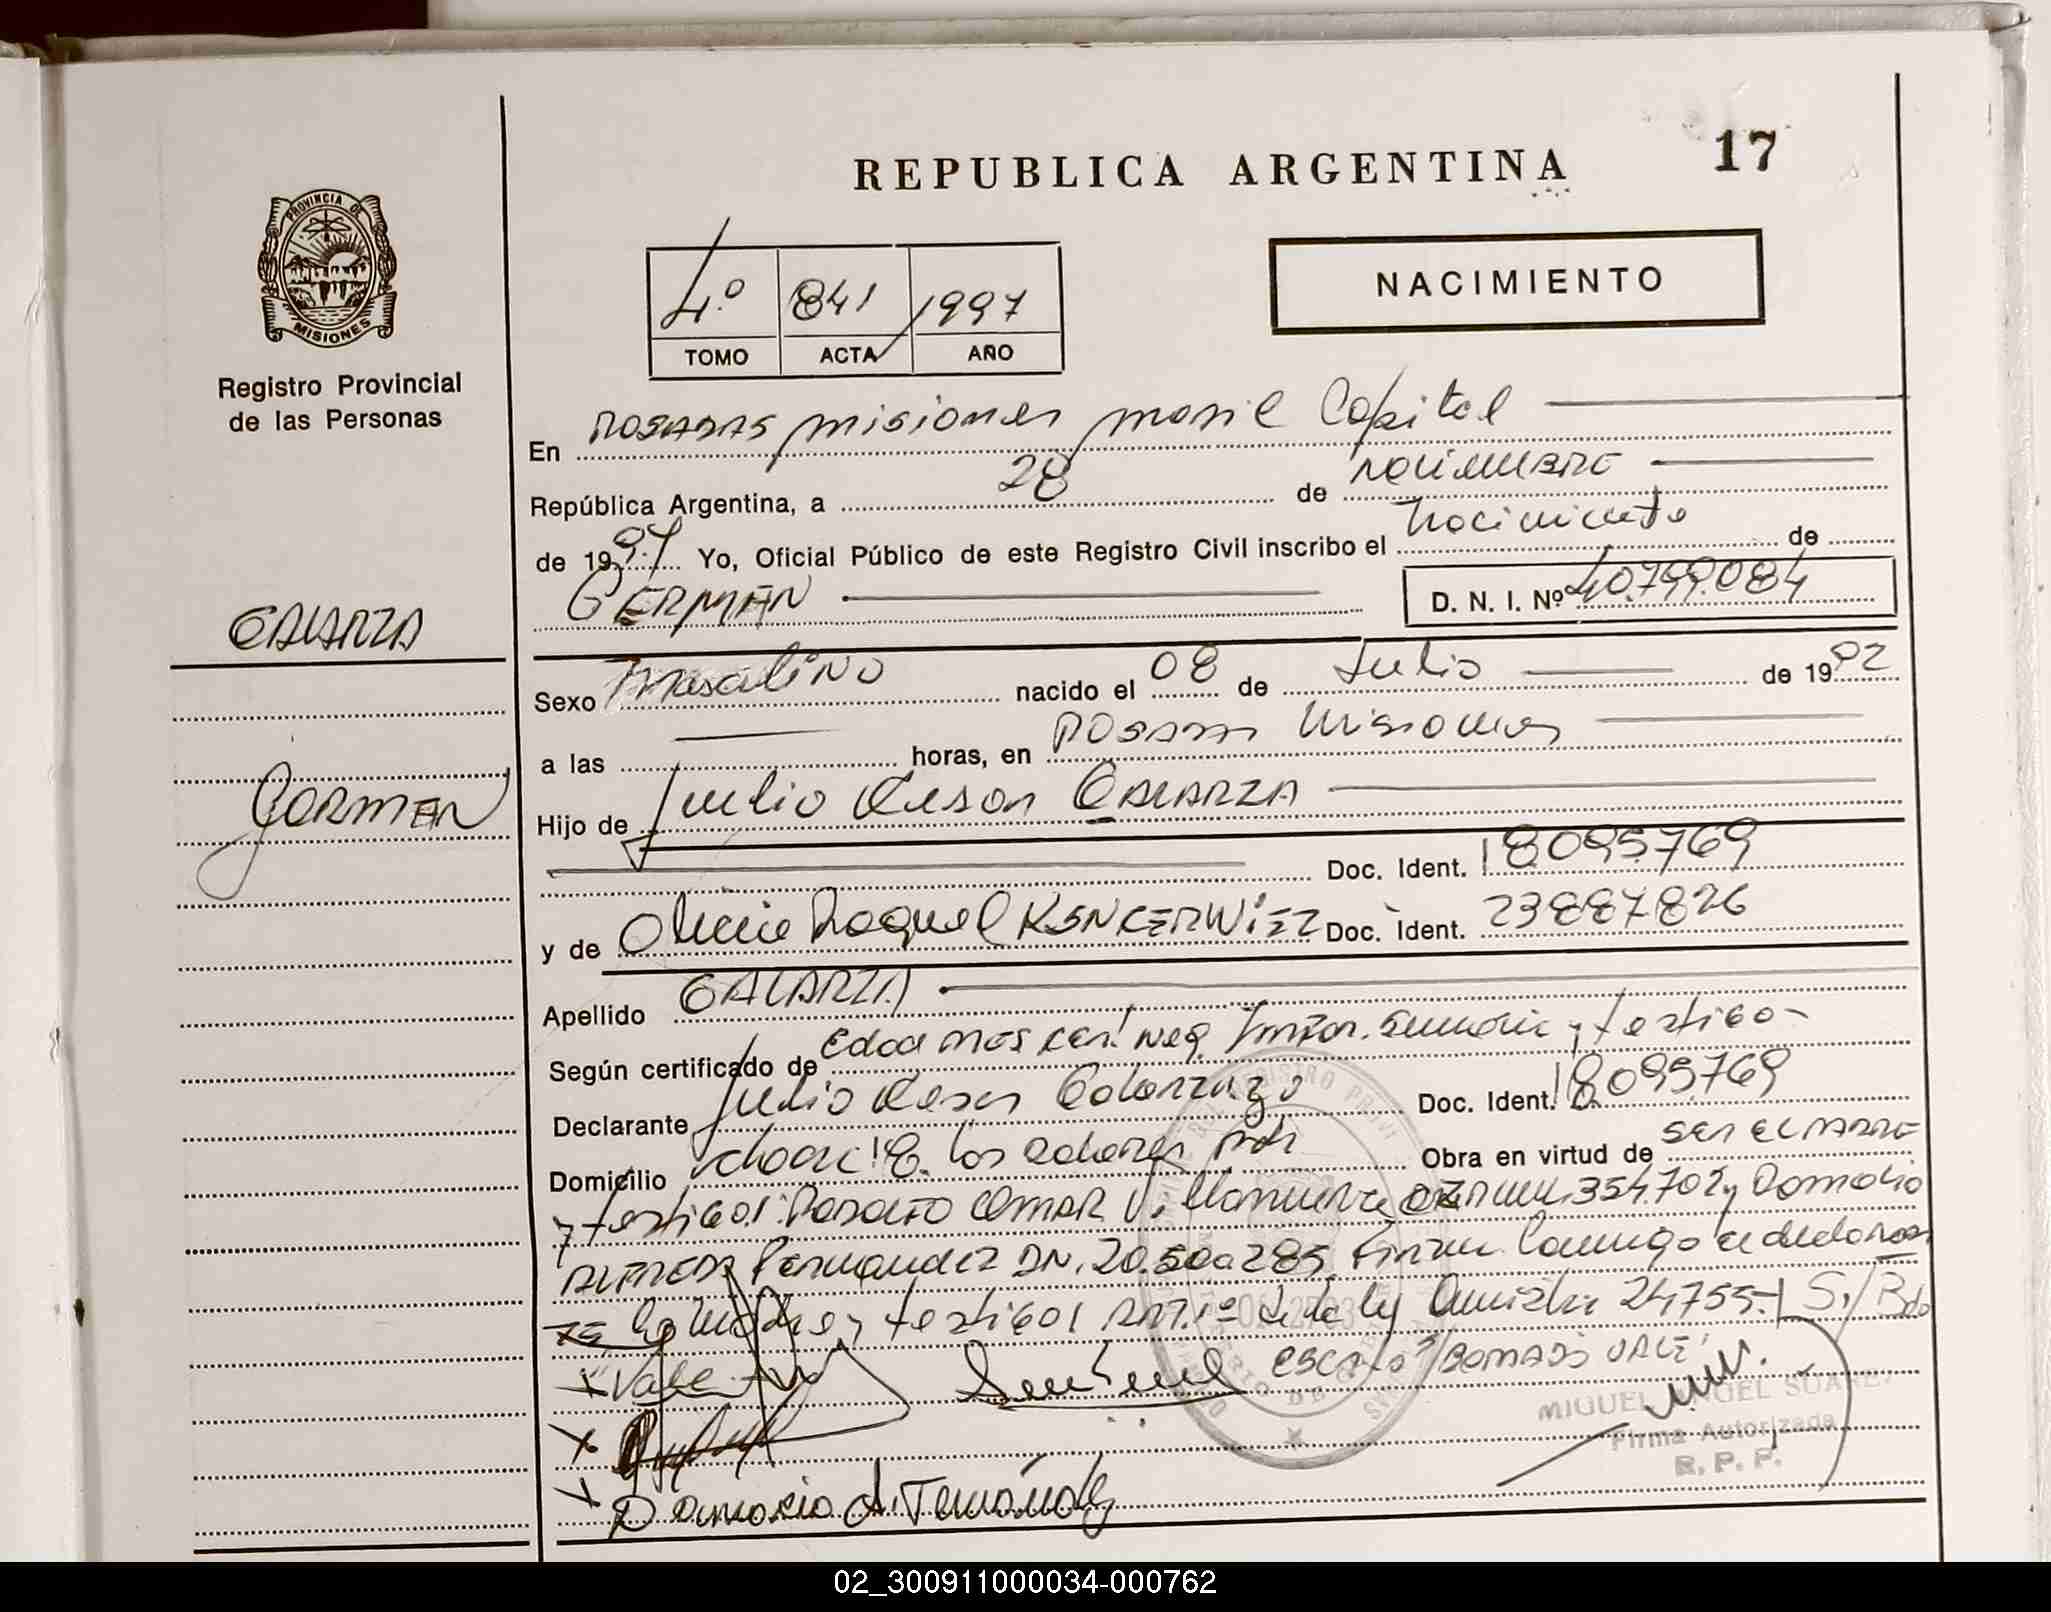 REPUBLICA ARGENTINA 17
PROVINCIA DE
MISIONES
Registro Provincial
de las Personas
4º 841 1997
TOMO ACTA AÑO
NACIMIENTO
En POSADAS misiones movil Capital
República Argentina, a 28 de noviembre
de 1997 Yo, Oficial Público de este Registro Civil inscribo el nacimiento de
GERMAN D. N. I. Nº 40.799.084
GALARZA
Sexo masculino nacido el 08 de Julio de 1992
a las horas, en Posadas Misiones
GERMAN
Hijo de Julio Cesar GALARZA
Doc. Ident. 18095769
y de Raquel Doc. Ident. 23887826
Apellido GALARZA
Según certificado de Edad neg. y testigo
Declarante Julio Cesar Galarza Doc. Ident. 18.095.769
Domicilio los Obra en virtud de ser el padre
y testigos: OMAR V. 354.702 y Domacio
ALFREDO Fernandez DN. 20.500285 Firman Conmigo el declaran
TE la madre y testigos ART. 1º de la ley Amnistia 24755- S/Bdo
"Vale"
ESCRITO S/BORRADO VALE
MIGUEL ANGEL SUAREZ
Firma Autorizada
R. P. P.
02_300911000034-000762